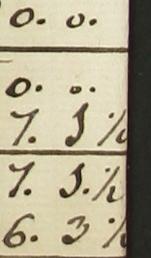 0. 0.
0. ..
7. 3 ½
7. 3. ½
6. 3 ½